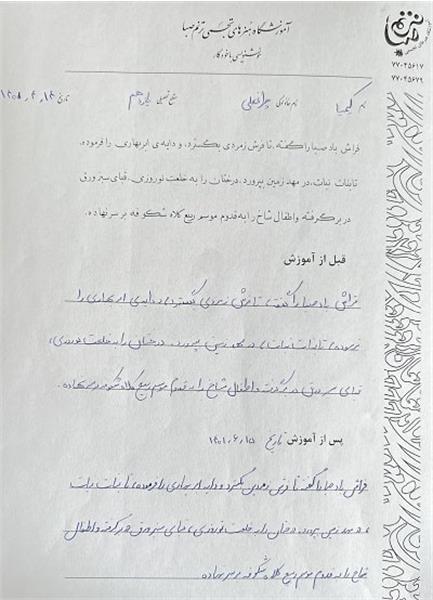 آموزشگاه هنرهای تجسمی ترنم صبا
خوشنویسی با خودکار
ترنم صبا
۷۷۰۴۵۶۱۷
۷۷۰۴۵۶۷۹
نام کیمیا نام خانوادگی سطح تحصیلی یازدهم تاریخ
فراش باد صبا را گفته، تا فرش زمردی بگسترد، و دایه‌ی ابر بهاری را فرموده،
تا بنات نبات، در مهد زمین بپرورد، درختان را به خلعت نوروزی، قبای سبز ورق
در بر گرفته و اطفال شاخ را به قدوم موسم ربیع کلاه شکوفه بر سر نهاده.
قبل از آموزش
فراش باد صبا را گفته، تا فرش زمردی بگسترد، و دایه‌ی ابر بهاری را
فرموده، تا بنات نبات، در مهد زمین بپرورد. درختان را به خلعت نوروزی،
قبای سبز ورق در بر گرفته و اطفال شاخ را به قدوم موسم ربیع کلاه شکوفه بر سر نهاده.
پس از آموزش تاریخ ۱۴۰۱,۶,۱۵
فراش باد صبا را گفته تا فرش زمردی بگسترد و دایه ابر بهاری را فرموده، تا بنات نبات
در مهد زمین بپرورد. درختان را به خلعت نوروزی، قبای سبز ورق در بر گرفته و اطفال
شاخ را به قدوم موسم ربیع کلاه شکوفه بر سر نهاده